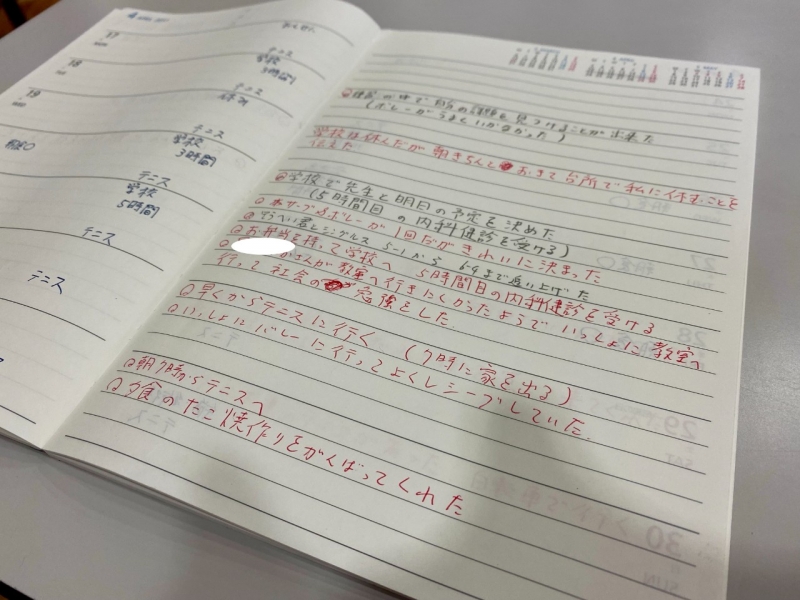 17
テニス
学校
3時間
18
テニス
休み
19
テニス
学校
3時間
テニス
学校
5時間
テニス
テニス
中で自分の課題を見つけることが出来た
(ボレーがうまくいかなかった)
学校は休んだが朝きちんとおきて台所で私に休むことを
伝えた
学校で先生と明日の予定を決めた
(5時間目の内科健診を受ける)
サーブ ボレーが1回だがきれいに決まった
君とシングルス 5-1から 6-4まで追い上げた
お弁当を持って学校へ 5時間目の内科健診を受ける
さんが教室へ行きにくかったようでいっしょに教室へ
行って社会の勉強をした
早くからテニスに行く (7時に家を出る)
いっしょにバレーに行ってよくレシーブしていた.
朝7時からテニスへ
夕食のたこ焼作りをがんばってくれた
27
28
29
SAT
30
SUN